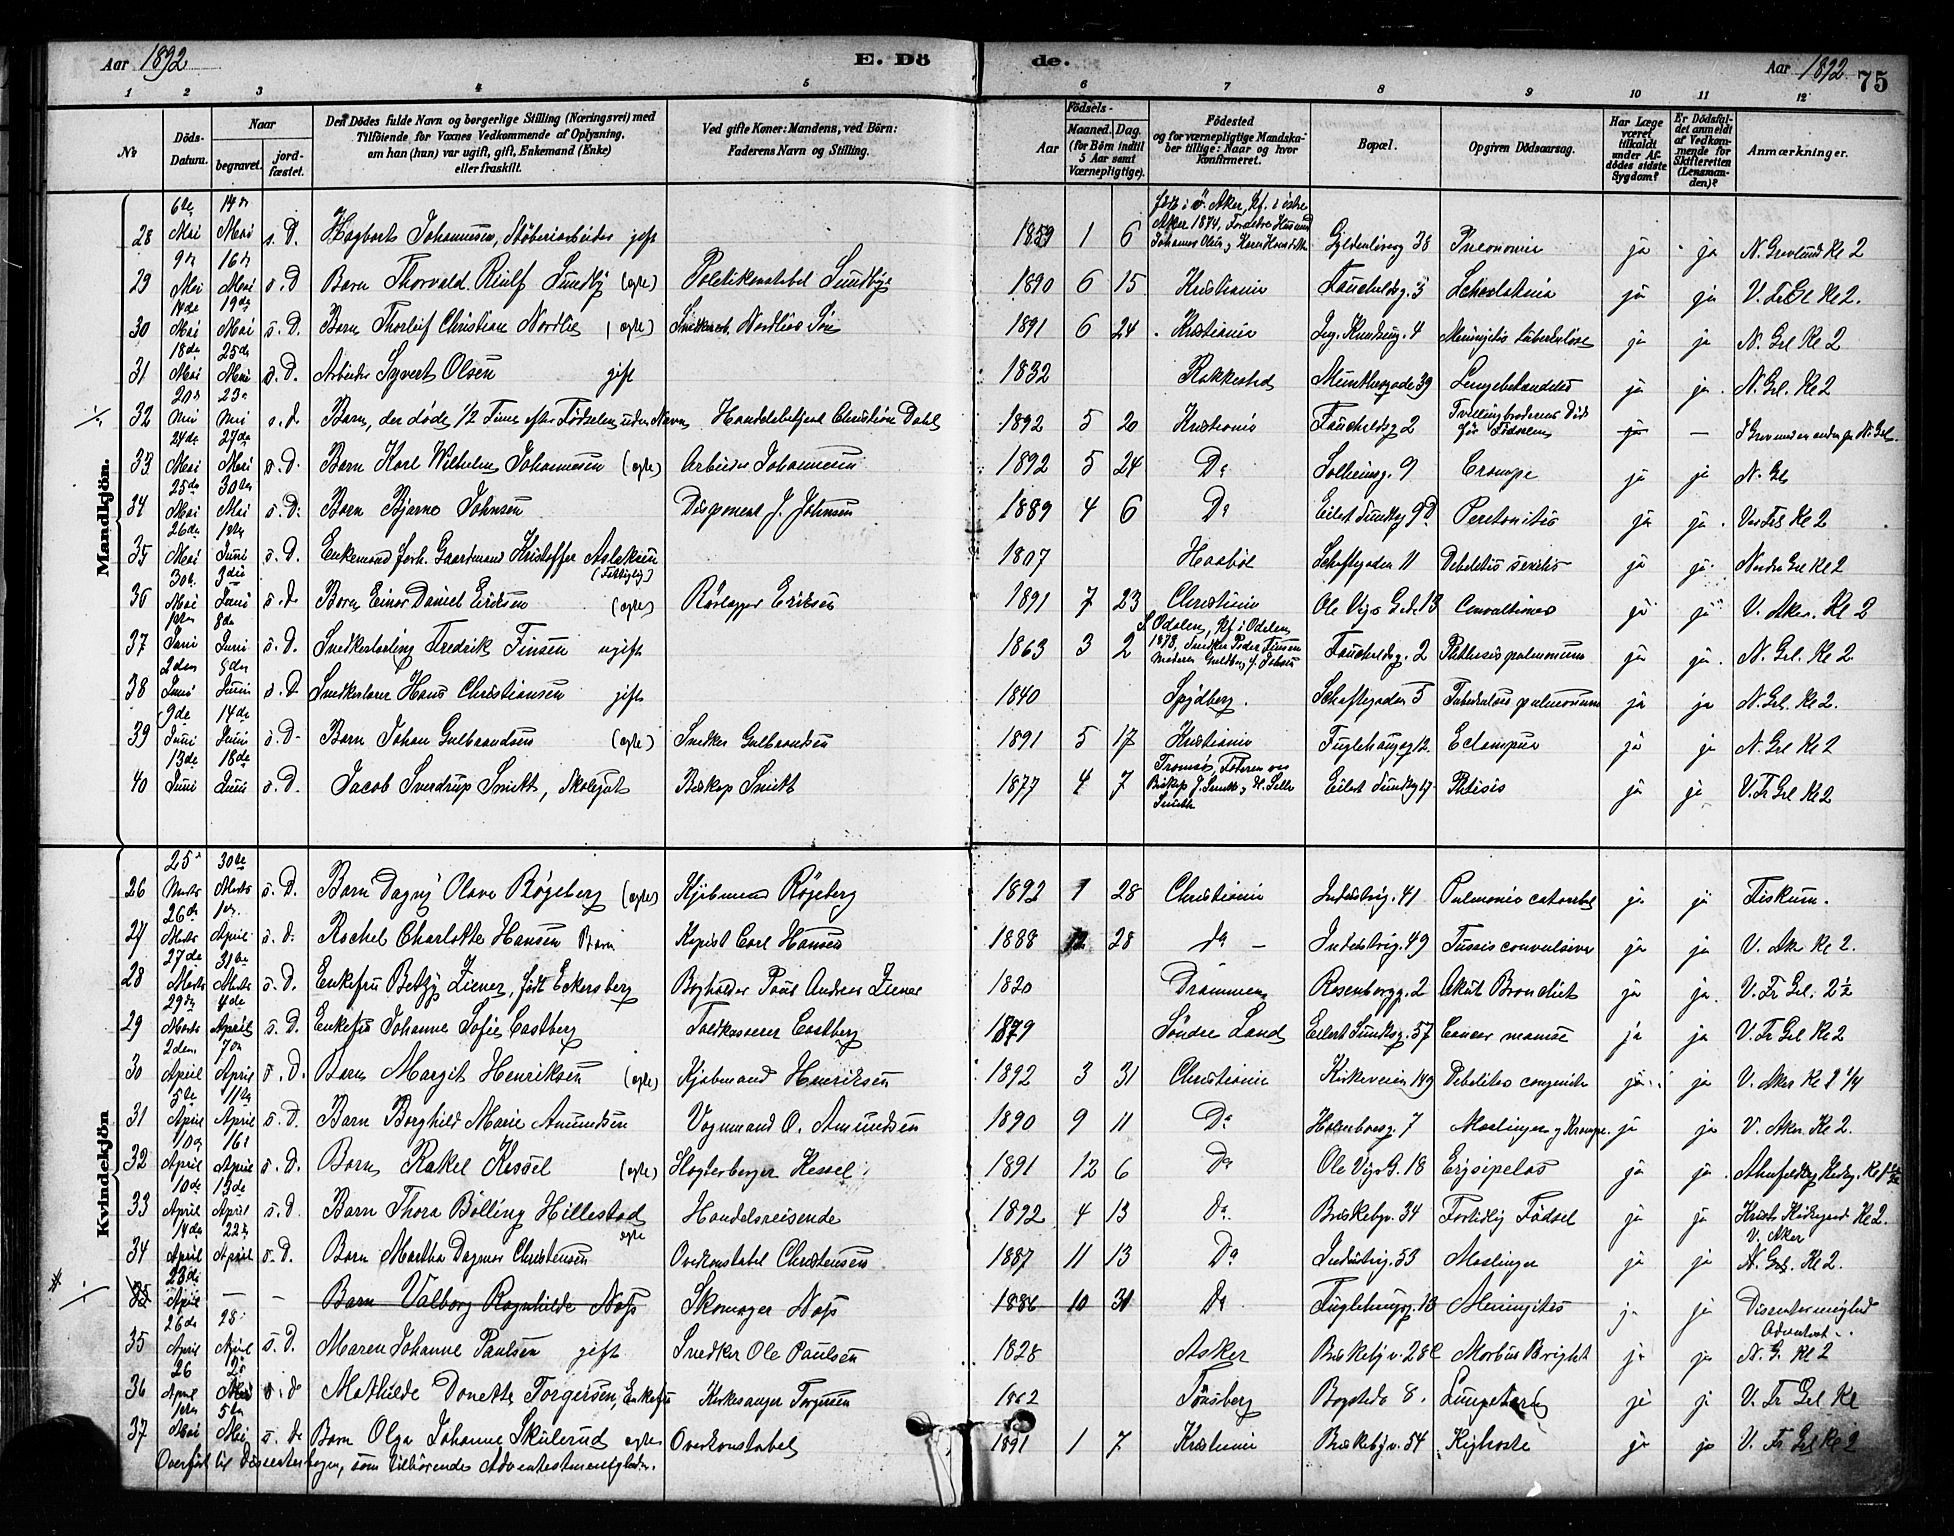 Aar 1892
E. Dö
de.
Aar 1892
75
1 2 3 4 5 6 7 8 9 10 11 12
No.
Döds-Datum.
Naar
begravet.
jord-fæstet.
Den Dödes fulde Navn og borgerlige Stilling (Næringsvei) med
Tilföiende for Voxnes Vedkommende af Oplysning,
om han (hun) var ugift, gift, Enkemand (Enke)
eller fraskilt.
Ved gifte Koner: Mandens, ved Börn:
Faderens Navn og Stilling.
Födsels-
Aar
Maaned. Dag.
(for Börn indtil
5 Aar samt
Værnepligtige).
Födested
og for værnepligtige Mandska-
ber tillige: Naar og hvor
Konfirmeret.
Bopæl.
Opgiven Dödsaarsag.
Har Læge
været
tilkaldt
under Af-
dödes sidste
Sygdom?
Er Dödsfal-
det anmeldt
af Vedkom-
mende for
Skifteretten
(Lensman-
den)?
Anmærkninger.
Mandkjön.
28 6te Mai 14de Mai s. D. Hagbarts Johannesen, Støberiarbeider gift 1859 1 6 Født i ø. Aker, Kf. i østre Aker 1874, Gyldenløvesg 38 Pneumonia ja ja N. Gravlund Kl 2
29 9de Mai 16de Mai s. D Barn Thorvald Reiulf Sundby (egte) Politikonstabel Sundby 1890 6 15 Kristiania Fauchaldsg. 3 ja ja V. Fr Gl Kl 2.
30 14de Mai 19de Mai s. D. Barn Thorleif Christian Nordlie (egte) Nordlies Søn 1891 6 24 Kristiania 4 Meningitis tuberkuløse ja ja N. Grl Kl 2
31 18de Mai 25de Mai s. D. Arbeider Syvert Olsen gift 1832 Rakkestad Munthesgade 39 Lungebetændelse ja ja N. Grl. Kl 2
32 20de Mai 23de Mai s. d Barn, der døde 1/2 Time efter Fødselen uden Navn Handelsbetjent Christian Dahl 1892 5 20 Kristiania Fauchaldsg 2 Tvillingbroderens Død før Fødselen ja — I Grav med en anden paa N. Grl.
33 24de Mai 27de Mai s. D. Barn Karl Wilhelm Johannesen (egte) Arbeider Johannesen 1892 5 24 Do Solheimsg. 9 Crampe ja ja N. Grl
34 25de Mai 30te Mai s. D. Barn Bjarne Johnsen Disponent J. Johnsen 1889 4 6 Do Eilert Sundtsg 9D Peritonitis ja ja Vor Frls Kl 2
35 26de Mai 1ste Juni s. D. Enkemand forh. Gaardmand Kristoffer Aslaksen (Fattiglig) 1807 Hobøl Schaftegaden 11 Debilitas senilis ja ja Nordre Grl Kl 2
36 30te Mai 3die Juni s. d. Barn Einar Daniel Eriksen (egte) Rørlægger Eriksen 1891 7 23 Christiania Ole Vigs G. 13 Convultiones ja ja V. Aker. Kl 2
37 1ste Juni 8de Juni s. D. Snedkerlærling Fredrik Finsen ugift 1863 3 2 S Odalen, Kf. i Odalen 1878, Snedker Peder Finsen Fauchaldsg. 2 Phthisis pulmonum ja ja N. Grl. Kl 2
38 2den Juni 8de Juni s. D Snedkerlærer Hans Christiansen gift 1840 Spydberg. Schaftegaden 5 Tuberkulosis pulmonum ja ja N. Grl. Kl 2.
39 9de Juni 14de Juni s. D. Barn Johan Gulbrandsen (egte) Snedker Gulbrandsen 1891 5 17 Kristiania Fuglehaugg 12 Eclampsia ja ja N. Grl Kl 2
40 13de Juni 18de Juni s. D. Jacob Sverdrup Smitt, Skolegut Biskop Smitt 1877 4 7 Tromsø, Forældre Biskop J. Smitt Eilert Sundtsg 17 Phtisis ja ja V. Fr Grl Kl 2
Kvindekjön
26 25de Marts 30te Marts s. D. Barn Dagny Olava Røgeberg (egte) Kjøbmand Røgeberg 1892 1 28 Christiania Industrig. 41 Pulmonia catarrhal ja ja Fiskum.
27 26de Marts 1ste April s. d. Rachel Charlotte Hansen Barn Kopist Carl Hansen 1888 12 28 do — Industrig. 49 Tussis convulsiva ja ja V. Aker Kl 2.
28 27de Marts 31te Marts s. D. Enkefru Betzy Ziener, født Eckersberg Bogholder Paul Andreas Ziener 1820 Drammen Rosenborgg. 2 Akut Bronchit ja ja V. Fr Grl. 2½
29 29de Marts 4de April s. D. Enkefru Johanne Sofie Castberg Toldkasserer Castberg 1879 Søndre Land Eilert Sundtsg. 57 Cancer mamæ ja ja V. Fr Grl Kl 2
30 2den April 7de April s. D. Barn Margit Henriksen (egte) Kjøbmand Henriksen 1892 3 31 Christiania Kirkeveien 149 Debilitas congenita ja ja V. Aker Kl 2 1/4
31 5te April 11te April s. D. Barn Borghild Marie Amundsen Vognmand O. Amundsen 1890 9 11 Do Holmboesg. 7 Mæslinger og Krampe. ja ja V. Aker Kl 2.
32 10de April 16de April s. D. Barn Rakel Kessel (egte) Slagterborger Kessel 1891 12 6 Do Ole Vigs G. 18 Erysipelas ja ja
33 10de April 13de April s. D. Barn Thora Bölling Hillestad egte Handelsreisende 1892 4 13 Do Briskebyv. 34 Fortidlig Fødsel ja ja Krists Kirkegaard Kl 2.
34 14de April 22de April s. D. Barn Martha Dagmar Christensen Overkonstabel Christensen 1887 11 13 Do Industrig. 53 Mæslinger ja ja V. Aker N. Grl. Kl 2.
35 23de April — — Barn Valborg Ragnhilde Næss Skomager Næss 1886 10 31 Do Fuglehaugg. 13 Meningitis ja ja Dissentermenighed Adventist.
35 26de April 28 April s. D. Maren Johanne Paulsen gift Snedker Ole Paulsen 1828 Asker Briskebyv. 28C Morbus Brightt ja ja N. G. Kl 2
36 26 April 2de Mai s. d Mathilde Donette Torgersen, Enkefru Kirkesanger Torgersen 1862 Tönsberg Bogstadv 8. ja ja V. Fr Grl Kl
37 1ste Mai 5te Mai s. d. Barn Olga Johanne Skulerud egte Overkonstabel 1891 1 7 Kristiania Briskebyv. 54 Kighoste ja ja V. Fr Grl Kl 2
Overført til Dissenterbogen, som tilhørende Adventistmenigheden.